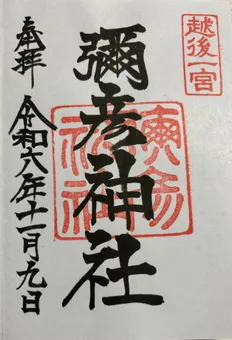 越後一宮
奉拝
彌彦神社
令和六年十一月九日